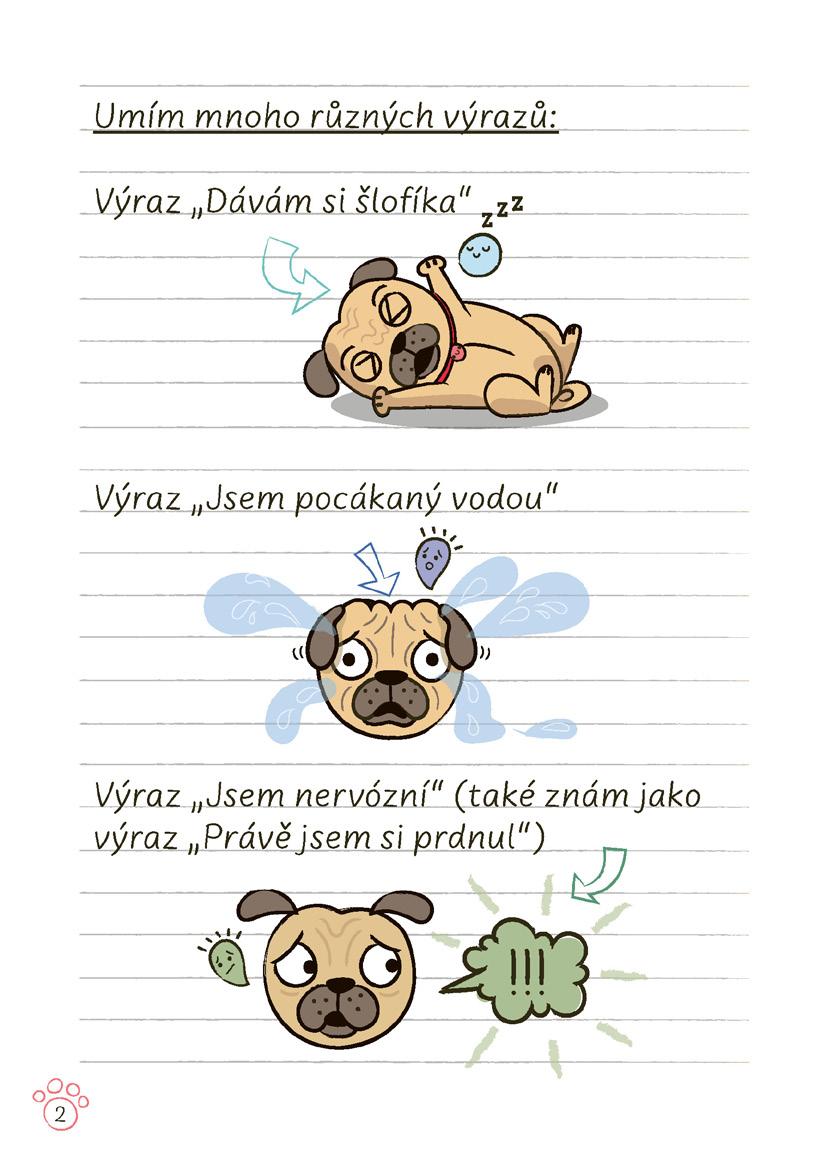 Umím mnoho různých výrazů:
Výraz „Dávám si šlofíka“
zzz
Výraz „Jsem pocákaný vodou“
Výraz „Jsem nervózní“ (také znám jako
výraz „Právě jsem si prdnul“)
!!!
2